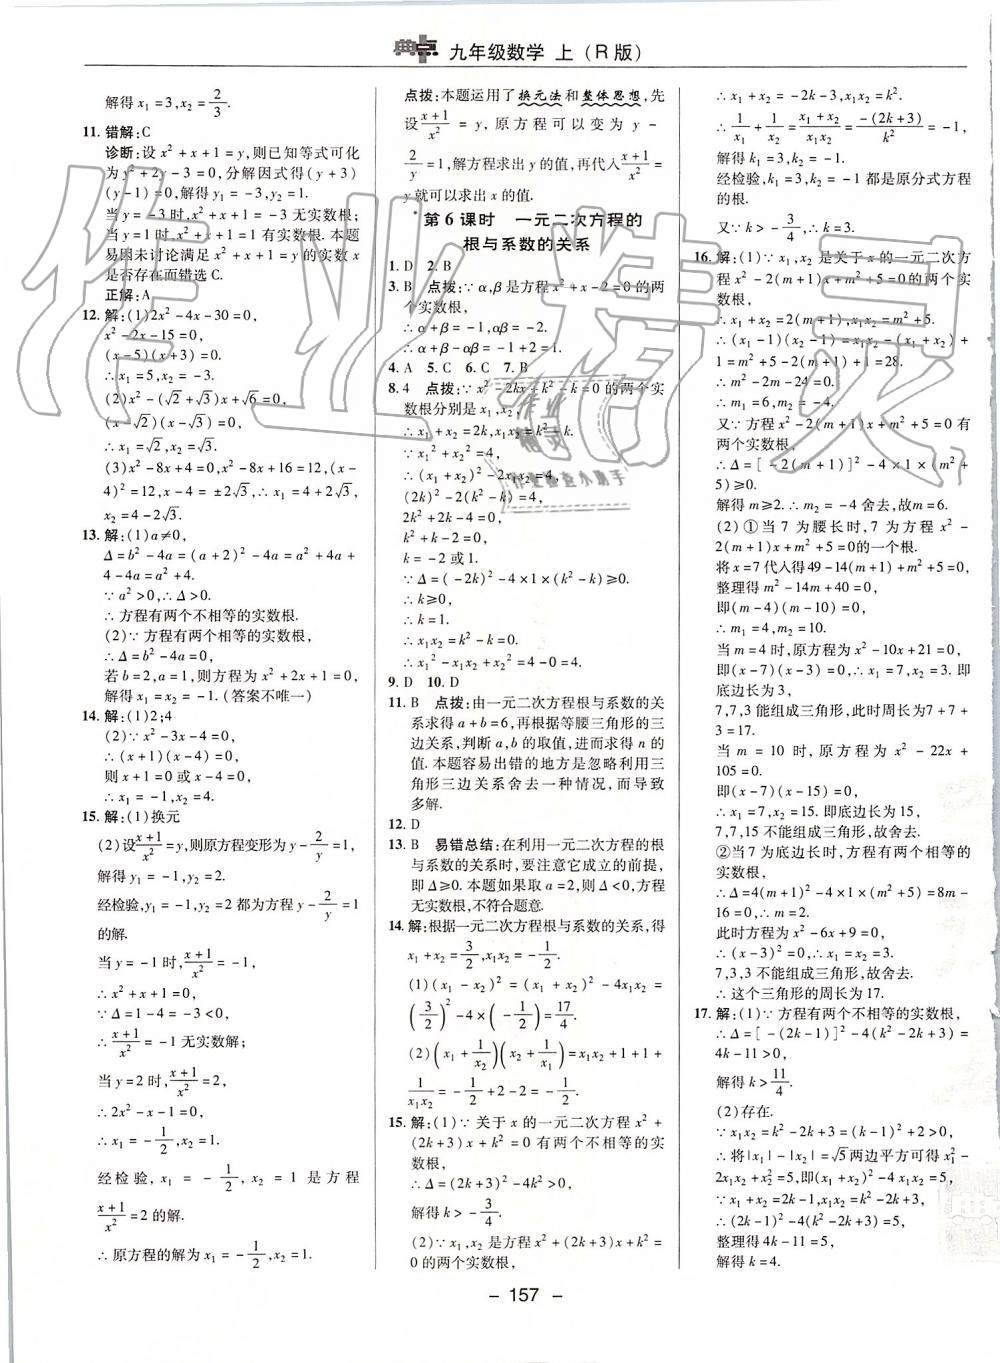 典点 九年级数学 上（R版）
解得 x₁=3,x₂=2/3.
11. 错解:C
诊断:设 x²+x+1=y,则已知等式可化
为 y²+2y-3=0,分解因式得(y+3)
(y-1)=0,解得 y₁=-3,y₂=1.
当 y=-3时,x²+x+1=-3无实数根;
当 y=1时,x²+x+1=1有实数根.本题
易因未讨论满足 x²+x+1=-3的实数 x
是否存在而错选 C.
正解:A
12. 解:(1)2x²-4x-30=0,
x²-2x-15=0,
(x-5)(x+3)=0,
∴x₁=5,x₂=-3.
(2)x²-(√2+√3)x+√6=0,
(x-√2)(x-√3)=0,
∴x₁=√2,x₂=√3.
(3)x²-8x+4=0,x²-8x+16=12,(x-
4)²=12,x-4=±2√3,∴x₁=4+2√3,
x₂=4-2√3.
13. 解:(1)a≠0,
Δ=b²-4a=(a+2)²-4a=a²+4a+
4-4a=a²+4.
∵a²>0,∴Δ>0.
∴方程有两个不相等的实数根.
(2)∵方程有两个相等的实数根,
∴Δ=b²-4a=0,
若 b=2,a=1,则方程为 x²+2x+1=0,
解得 x₁=x₂=-1.(答案不唯一)
14. 解:(1)2;4
(2)∵x²-3x-4=0,
∴(x+1)(x-4)=0,
则 x+1=0或 x-4=0,
∴x₁=-1,x₂=4.
15. 解:(1)换元
(2)设(x+1)/x²=y,则原方程变形为 y-2/y=1,
解得 y₁=-1,y₂=2.
经检验,y₁=-1,y₂=2都为方程 y-2/y=1
的解.
当 y=-1时,(x+1)/x²=-1,
∴x²+x+1=0,
∵Δ=1-4=-3<0,
∴(x+1)/x²=-1无实数解;
当 y=2时,(x+1)/x²=2,
∴2x²-x-1=0,
∴x₁=-1/2,x₂=1.
经检验,x₁=-1/2,x₂=1是方程
(x+1)/x²=2的解.
∴原方程的解为 x₁=-1/2,x₂=1.
点拨:本题运用了换元法和整体思想,先
设(x+1)/x²=y,原方程可以变为 y-
2/y=1,解方程求出 y 的值,再代入(x+1)/x²=
y 就可以求出 x 的值.
第6课时 一元二次方程的
根与系数的关系
1. D 2. B
3. B 点拨:∵α,β是方程 x²+x-2=0的两
个实数根,
∴α+β=-1,αβ=-2.
∴α+β-αβ=-1+2=1.
4. A 5. C 6. C 7. B
8. 4 点拨:∵x²-2kx+k²-k=0的两个实
数根分别是 x₁,x₂,
∴x₁+x₂=2k,x₁x₂=k²-k.
∵x₁²+x₂²=4,
∴(x₁+x₂)²-2x₁x₂=4,
(2k)²-2(k²-k)=4,
2k²+2k-4=0,
k²+k-2=0,
k=-2或1.
∵Δ=(-2k)²-4×1×(k²-k)≥0.
∴k≥0,
∴k=1.
∴x₁x₂=k²-k=0.
∴x₁²-x₁x₂+x₂²=4-0=4.
9. D 10. D
11. B 点拨:由一元二次方程根与系数的关
系求得 a+b=6,再根据等腰三角形的三
边关系,判断 a,b 的取值,进而求得 n 的
值.本题容易出错的地方是忽略利用三
角形三边关系舍去一种情况,而导致
多解.
12. D
13. B 易错总结:在利用一元二次方程的根
与系数的关系时,要注意它成立的前提,
即Δ≥0.本题如果取 a=2,则Δ<0,方程
无实数根,不符合题意.
14. 解:根据一元二次方程根与系数的关系,得
x₁+x₂=3/2,x₁x₂=-1/2.
(1)(x₁-x₂)²=(x₁+x₂)²-4x₁x₂=
(3/2)²-4×(-1/2)=17/4.
(2)(x₁+1/x₂)(x₂+1/x₁)=x₁x₂+1+1+
1/(x₁x₂)=-1/2+2-2=-1/2.
15. 解:(1)∵关于 x 的一元二次方程 x²+
(2k+3)x+k²=0有两个不相等的实
数根,
∴Δ=(2k+3)²-4k²>0,
解得 k>-3/4.
(2)∵x₁,x₂是方程 x²+(2k+3)x+k²=
0的两个实数根,
∴x₁+x₂=-2k-3,x₁x₂=k².
∴1/x₁+1/x₂=(x₁+x₂)/(x₁x₂)=-(2k+3)/k²=-1,
解得 k₁=3,k₂=-1.
经检验,k₁=3,k₂=-1都是原分式方程
的根.
又∵k>-3/4,∴k=3.
16. 解:(1)∵x₁,x₂是关于 x 的一元二次方
程 x²-2(m+1)x+m²+5=0的两个实
数根,
∴x₁+x₂=2(m+1),x₁x₂=m²+5.
∴(x₁-1)(x₂-1)=x₁x₂-(x₁+x₂)+
1=m²+5-2(m+1)+1=28.
∴m²-2m-24=0.
∴m₁=6,m₂=-4.
又∵方程 x²-2(m+1)x+m²+5=0有
两个实数根,
∴Δ=[-2(m+1)]²-4×1×(m²+5)≥0,
解得 m≥2.∴m₂=-4舍去,故m=6.
(2)①当7为腰长时,7为方程 x²-
2(m+1)x+m²+5=0的一个根.
将 x=7代入得49-14(m+1)+m²+5=0,
整理得 m²-14m+40=0,
即(m-4)(m-10)=0,
∴m₁=4,m₂=10.
当 m=4时,原方程为 x²-10x+21=0,
即(x-7)(x-3)=0,∴x₁=7,x₂=3.即
底边长为3,
7,7,3能组成三角形,此时周长为7+7+
3=17.
当 m=10时,原方程为 x²-22x+
105=0.
即(x-7)(x-15)=0,
∴x₁=7,x₂=15.即底边长为15,
7,7,15不能组成三角形,故舍去.
②当7为底边长时,方程有两个相等的
实数根,
∴Δ=4(m+1)²-4×1×(m²+5)=8m-
16=0,∴m=2.
此时方程为 x²-6x+9=0,
∴(x-3)²=0,∴x₁=x₂=3.
7,3,3不能组成三角形,故舍去.
∴这个三角形的周长为17.
17. 解:(1)∵方程有两个不相等的实数根,
∴Δ=[-(2k-1)]²-4(k²-2k+3)=
4k-11>0,
解得 k>11/4.
(2)存在.
∵x₁x₂=k²-2k+3=(k-1)²+2>0,
∴将|x₁|-|x₂|=√5两边平方可得x₁²-
2x₁x₂+x₂²=5,即(x₁+x₂)²-4x₁x₂=5,
∵x₁+x₂=2k-1,x₁x₂=k²-2k+3,
∴(2k-1)²-4(k²-2k+3)=5,
整理得 4k-11=5,
解得 k=4.
- 157 -
作业精灵
作业
精灵
作业检查小助手